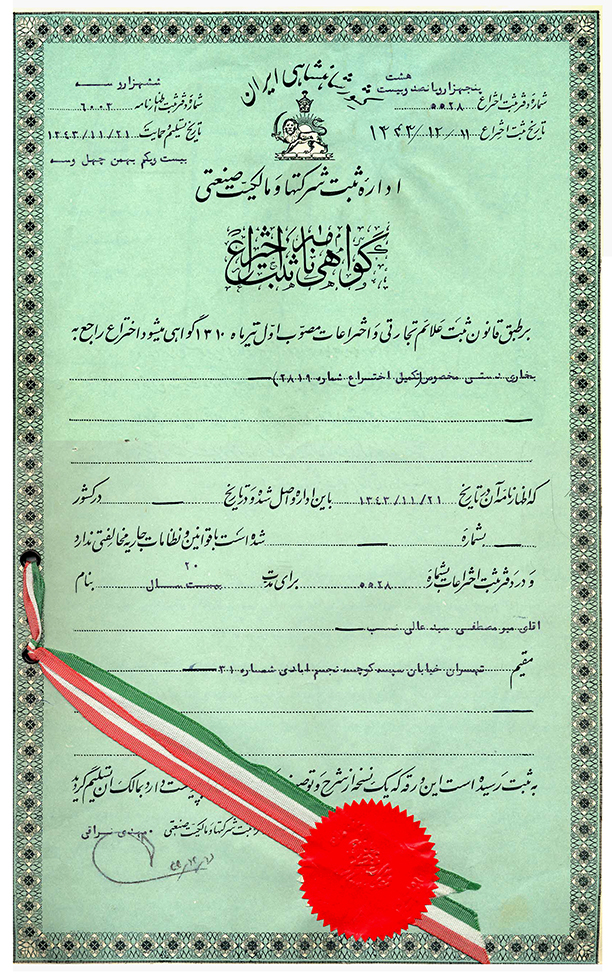 کشور شاهنشاهی ایران
هشت
پنجهزار و پانصد و بیست
شماره دفتر ثبت اختراع ۵۵۲۸
تاریخ ثبت اختراع ۱۳۴۳/۱۲/۱۱
ششهزار و سه
شماره دفتر ثبت اظهارنامه ۶۰۰۳
تاریخ تسلیم حمایت ۱۳۴۳/۱۱/۲۱
بیست ویکم بهمن چهل وسه
اداره ثبت شرکتها و مالکیت صنعتی
گواهی نامه ثبت اختراع
بر طبق قانون ثبت علائم تجارتی و اختراعات مصوب اول تیر ماه ۱۳۱۰ گواهی میشود اختراع راجع به
بخاری نستی مخصوص (تکمیل اختراع شماره ۲۸۱۹)
که اظهارنامه آن در تاریخ ۱۳۴۳/۱۱/۲۱ باین اداره واصل شده و در تاریخ در کشور
بشماره شده است با قوانین و نظامات جاریه مخالفتی ندارد
و در دفتر ثبت اختراعات بشماره ۵۵۲۸ برای مدت ۲۰ بیست سال بنام
اقای میر مصطفی سید عالی نسب
مقیم تهران خیابان سپه کوچه نجم ابادی شماره ۳۱
به ثبت رسیده است این ورقه که یک نسخه از شرح و توصیف پیوست دارد بمالک ان تسلیم گردید
ثبت شرکتها و مالکیت صنعتی مهدی نراقی